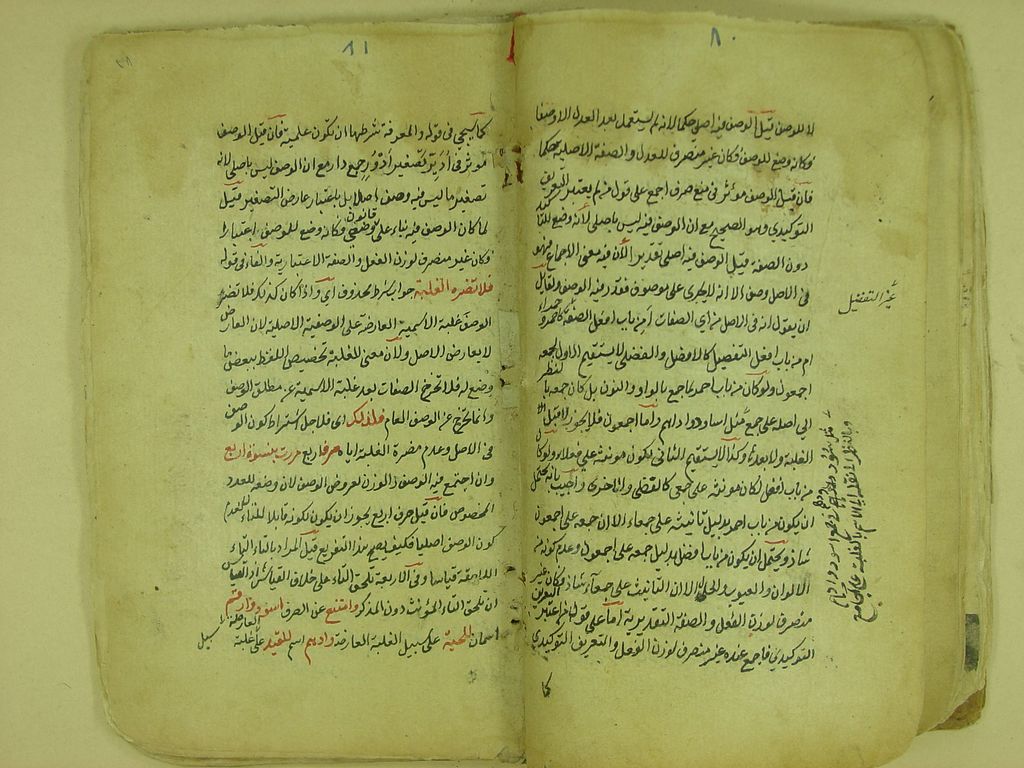 ٨٠
لا للوصف قيل الوصف فيه اصلي حكما لانه لم يستعمل بعد العدل الا وصفا
وكانه وضع للوصف فكان غير منصرف للعدل والصفة الاصلية حكما
فان قيل الوصف مؤثر في منع صرف اجمع على قول من لم يعتبر التعريف
التوكيدي وهو الصحيح مع ان الوصف فيه ليس باصلي لانه وضع للتاكيد
دون الصفة قيل الوصف فيه اصلي تقديرا لان فيه معنى الاجماع فهو
في الاصل وصف الا انه لا يجري على موصوف فقدر فيه الوصف لقائل
ان يقول انه في الاصل من اي الصفات أمن باب افعل الصفة كاحمر
ام من باب افعل التفضيل كالافضل والفضلى لا يستقيم الاول لجمعه
اجمعون ولو كان من باب احمر لما جمع بالواو والنون بل كان جمعه
الى اصله على جمع مثل اساود واداهم واما اجمعون فلا يجوز لا قبل
الغلبة ولا بعدها وكذا لا يستقيم الثاني لكون مؤنثه على فعلاء ولو كان
من باب افعل لكان مؤنثه على جمعى كالفضلى والاخرى واجيب بانه يحتمل
ان يكون من باب احمر بدليل تانيثه على جمعاء الا ان جمعه على اجمعون
شاذ ويحتمل ان يكون من باب افضل بدليل جمعه على اجمعون وعدم كونه من
الالوان والعيوب والحلى الا ان التانيث على جمعاء شاذ فكان غير
منصرف لوزن الفعل والصفة التقديرية اما على قول من اعتبر التعريف
التوكيدي فاجمع عنده غير منصرف لوزن الفعل والتعريف التوكيدي
كما
غير التفضيل
٨١
كما سيجيء في قوله والمعرفة شرطها ان تكون علمية فان قيل الوصف
مؤثر في أديئر تصغير أدؤر جمع دار مع ان الوصف ليس باصلي لانه
تصغير ما ليس فيه وصف اصلا بل باعتبار عارض التصغير قيل
لما كان الوصف فيه بناء على قانون وضعي فكانه وضع للوصف اعتبارا
فكان غير منصرف لوزن الفعل والصفة الاعتبارية والفاء في قوله
فلا تضره الغلبة جواب شرط محذوف اي واذا كان كذلك فلا تضر
الوصف غلبة الاسمية العارضة على الوصفية الاصلية لان العارض
لا يعارض الاصل ولان معنى الغلبة تخصيص اللفظ ببعض ما
وضع له فلا تخرج الصفات بعد غلبة الاسمية عن مطلق الوصف
وانما تخرج عن الوصف العام فلذلك اي فلاجل اشتراط كون الوصف
في الاصل وعدم مضرة الغلبة اياه صرف اربع مررت بنسوة اربع
وان اجتمع فيه الوصف والوزن لعروض الوصف لان وضعه للعدد
المخصوص فان قيل صرف اربع يجوز ان يكون لكونه قابلا للتاء لا لعدم
كون الوصف اصليا فكيف يصح هذا التفريع قيل المراد بالتاء التاء
اللاحقة قياسا وفي الاربعة تلحق التاء على خلاف القياس اذ القياس
ان تلحق التاء المؤنث دون المذكر وامتنع عن الصرف اسود وارقم
اسمان للحية على سبيل الغلبة العارضة وادهم اسم للقيد على غلبة